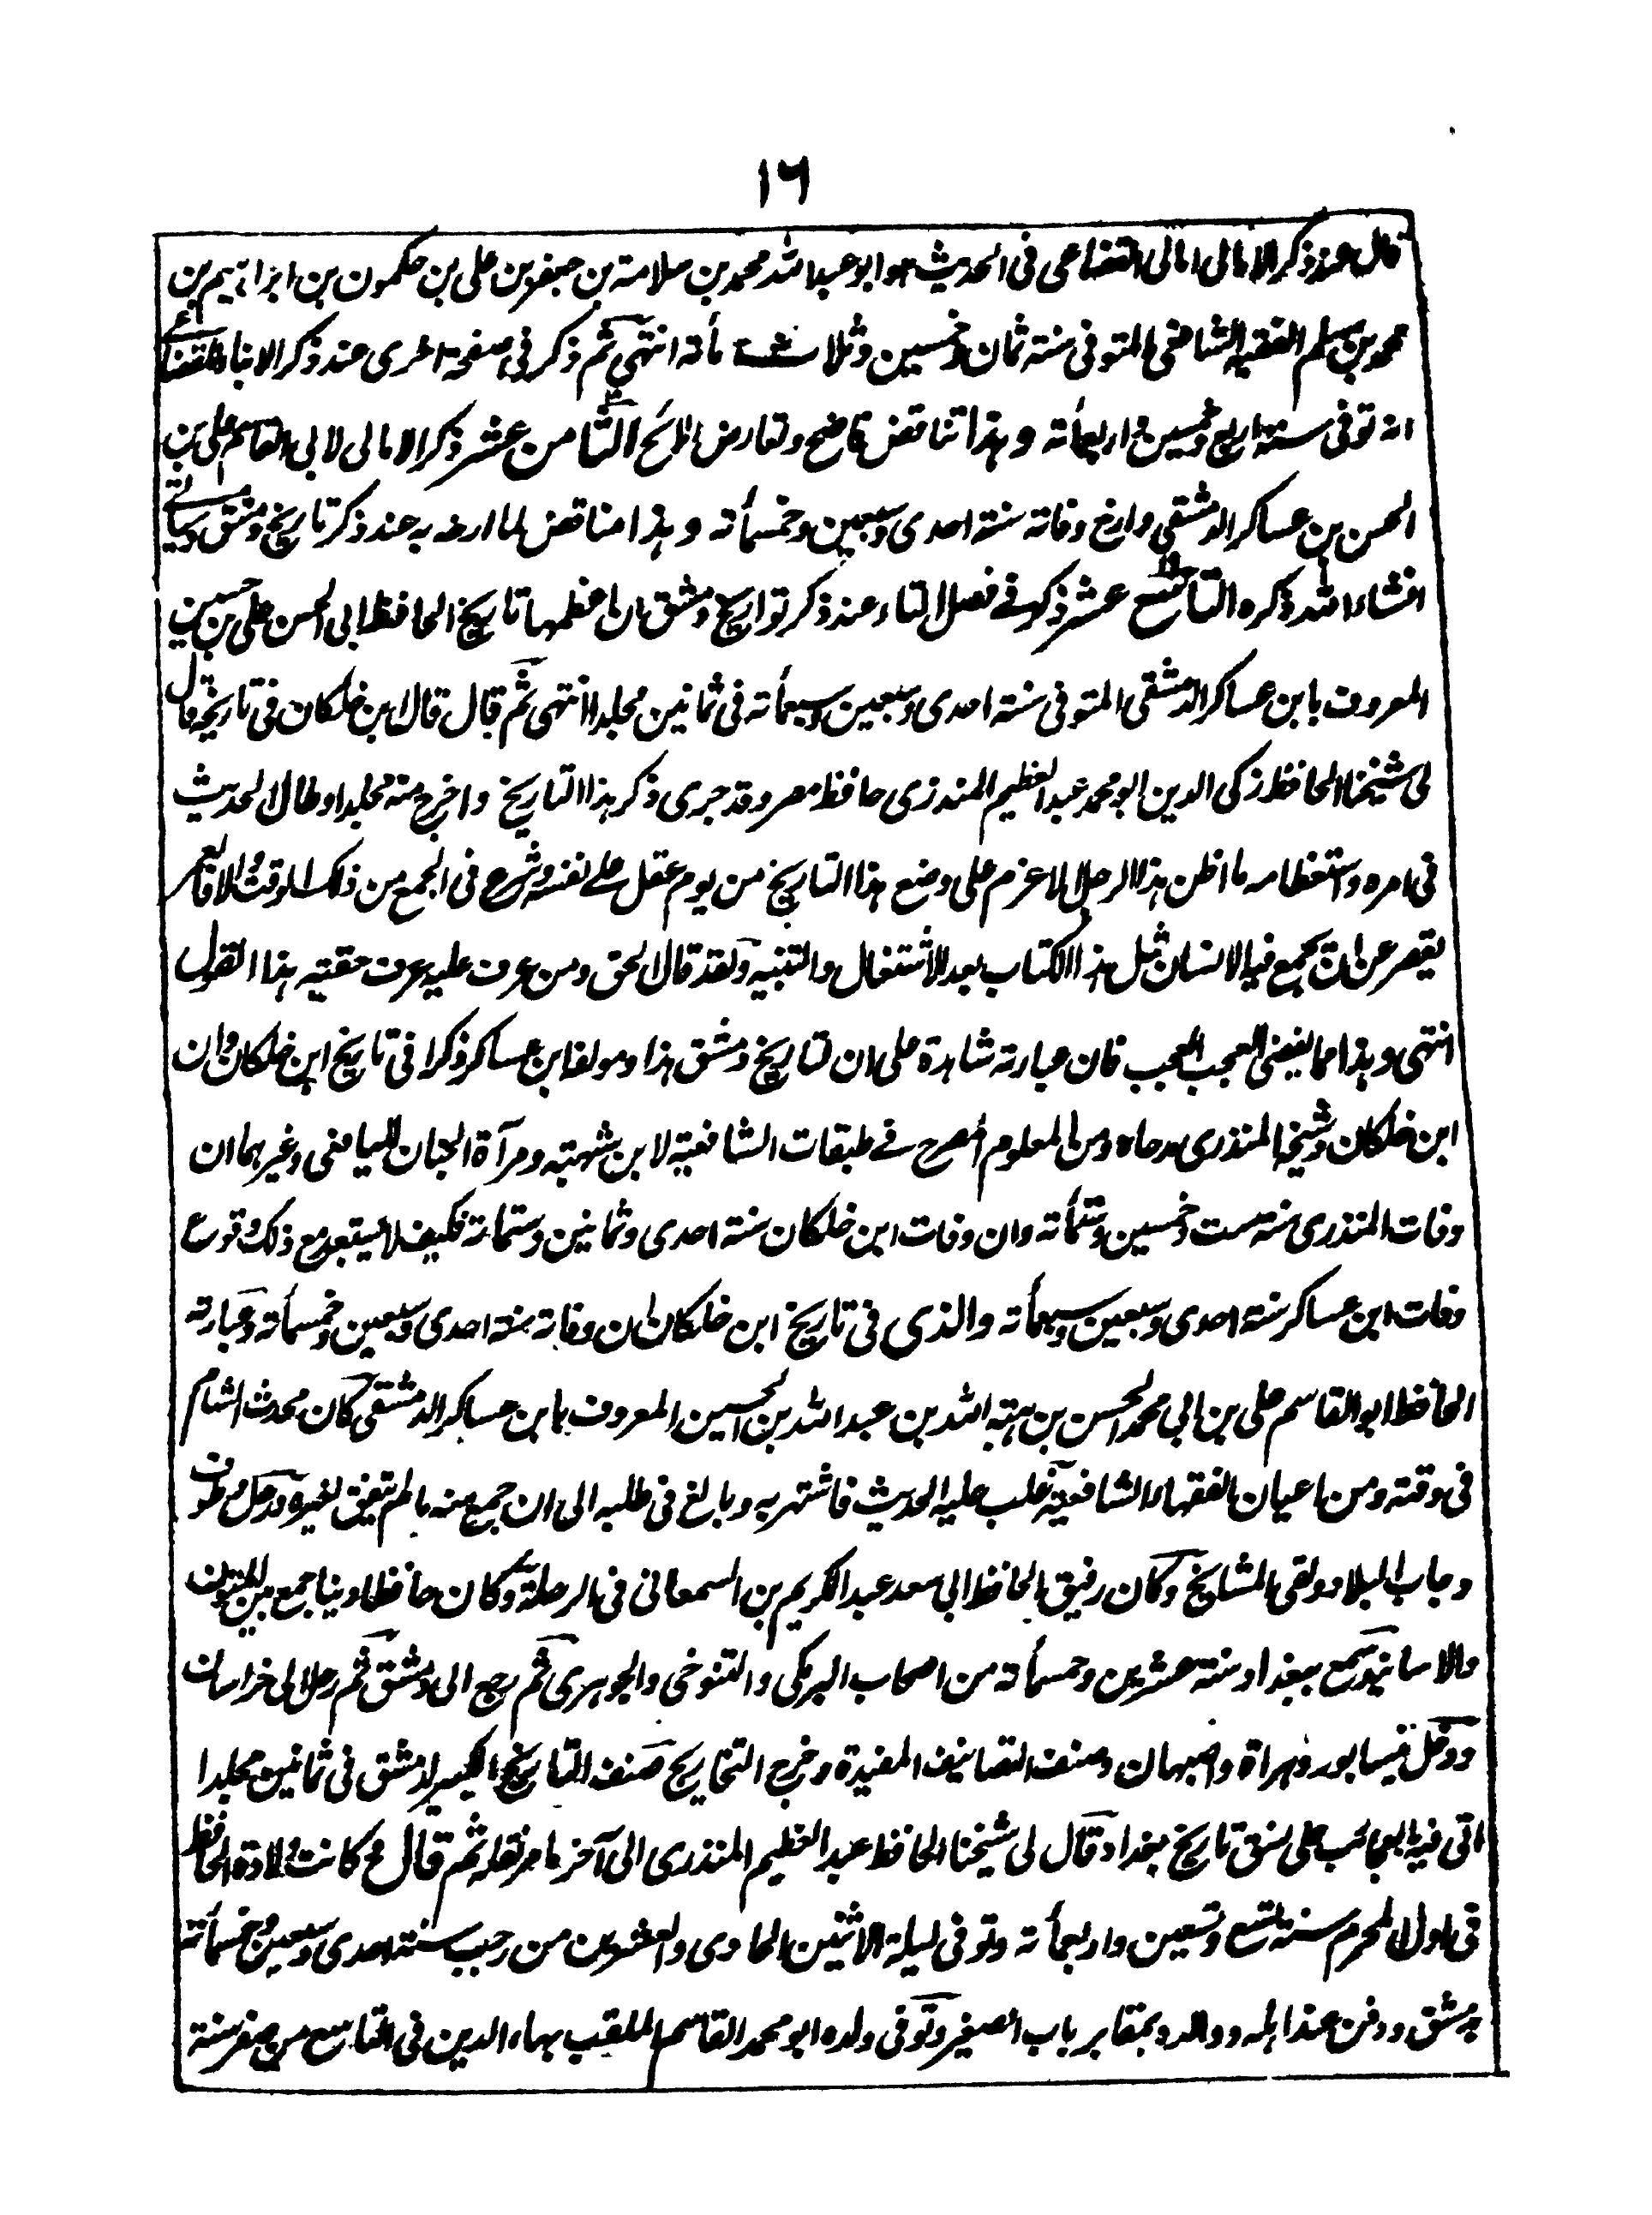 ١٦
قال عند ذكر الامالى امالى القضاعى فى الحديث هو ابو عبد الله محمد بن سلامة بن جعفر بن على بن حكمون بن ابراهيم بن
محمد بن مسلم الفقيه الشافعى المتوفى سنة ثمان وخمسين وثلاث مأته انتهى ثم ذكر فى صفحة اخرى عند ذكر الانباء للقضاعى
انه توفى سنة اربع وخمسين واربعمأته وهذا تناقض فاضح وتعارض لائح الثامن عشر ذكر الامالى لابى القاسم على بن
الحسن بن عساكر الدمشقى وارخ وفاته سنة احدى وسبعين وخمسمأته وهذا مناقض لما ارخه به عند ذكر تاريخ دمشق وسيأتى
انشاء الله ذكره التاسع عشر ذكر فى فصل التاء عند ذكر تواريخ دمشق ان اعظمها تاريخ الحافظ ابى الحسن على بن حسين
المعروف بابن عساكر الدمشقى المتوفى سنة احدى وسبعين وسبعمأته فى ثمانين مجلدا انتهى ثم قال قال ابن خلكان فى تاريخه قال
لى شيخنا الحافظ زكى الدين ابو محمد عبد العظيم المنذرى حافظ مصر وقد جرى ذكر هذا التاريخ واخرج منه مجلدا وطال الحديث
فى امره واستعظامه ما اظن هذا الرجل الا عزم على وضع هذا التاريخ من يوم عقل على نفسه وشرع فى الجمع من ذلك الوقت والا فالعمر
يقصر عن ان يجمع فيه الانسان مثل هذا الكتاب بعد الاشتغال والتنبيه ولقد قال الحق ومن عرف عليه عرف حقيقته هذا القول
انتهى وهذا مما يفضى العجب العجب فان عبارته شاهدة على ان لتاريخ دمشق هذا ومولفه ابن عساكر ذكرا فى تاريخ ابن خلكان وان
ابن خلكان وشيخه المنذرى مدحاه ومن المعلوم المصرح فى طبقات الشافعية لابن شهبته ومرآة الجنان لليافعى وغيرهما ان
وفات المنذرى سنة ست وخمسين وستمأته وان وفات ابن خلكان سنة احدى وثمانين وستمائة فكيف لا يستبعد مع ذلك وقوع
وفات ابن عساكر سنة احدى وسبعين وسبعمأته والذى فى تاريخ ابن خلكان ان وفاته سنة احدى وسبعين وخمسمأته وعبارته
الحافظ ابو القاسم على بن ابى محمد الحسن بن هبته الله بن عبد الله بن الحسين المعروف بابن عساكر الدمشقى كان محدث الشام
فى وقته ومن اعيان الفقهاء الشافعية غلب عليه الحديث فاشتهر به وبالغ فى طلبه الى ان جمع منه ما لم يتفق لغيره ورحل وطوف
وجاب البلاد ولقى المشايخ وكان رفيق الحافظ ابى سعد عبد الكريم بن السمعانى فى الرحلة وكان حافظا دينا جمع بين المتون
والاسانيد سمع ببغداد سنة عشرين وخمسمأته من اصحاب البرمكى والتنوخى والجوهرى ثم رجع الى دمشق ثم رحل الى خراسان
ودخل نيسابور وهراة واصبهان وصنف التصانيف المفيدة وخرج التخاريج صنف التاريخ الكبير لدمشق فى ثمانين مجلدا
اتى فيه بالعجائب على نسق تاريخ بغداد قال لى شيخنا الحافظ عبد العظيم المنذرى الى آخر ما مر نقله ثم قال وكانت ولادة الحافظ
فى اول المحرم سنة تسع وتسعين واربعمأته وتوفى ليلة الاثنين الحادى والعشرين من رجب سنة احدى وسبعين وخمسمأته
بدمشق ودفن عند اهله ووالده بمقابر باب الصغير وتوفى ولده ابو محمد القاسم الملقب بهاء الدين فى التاسع من صفر سنة